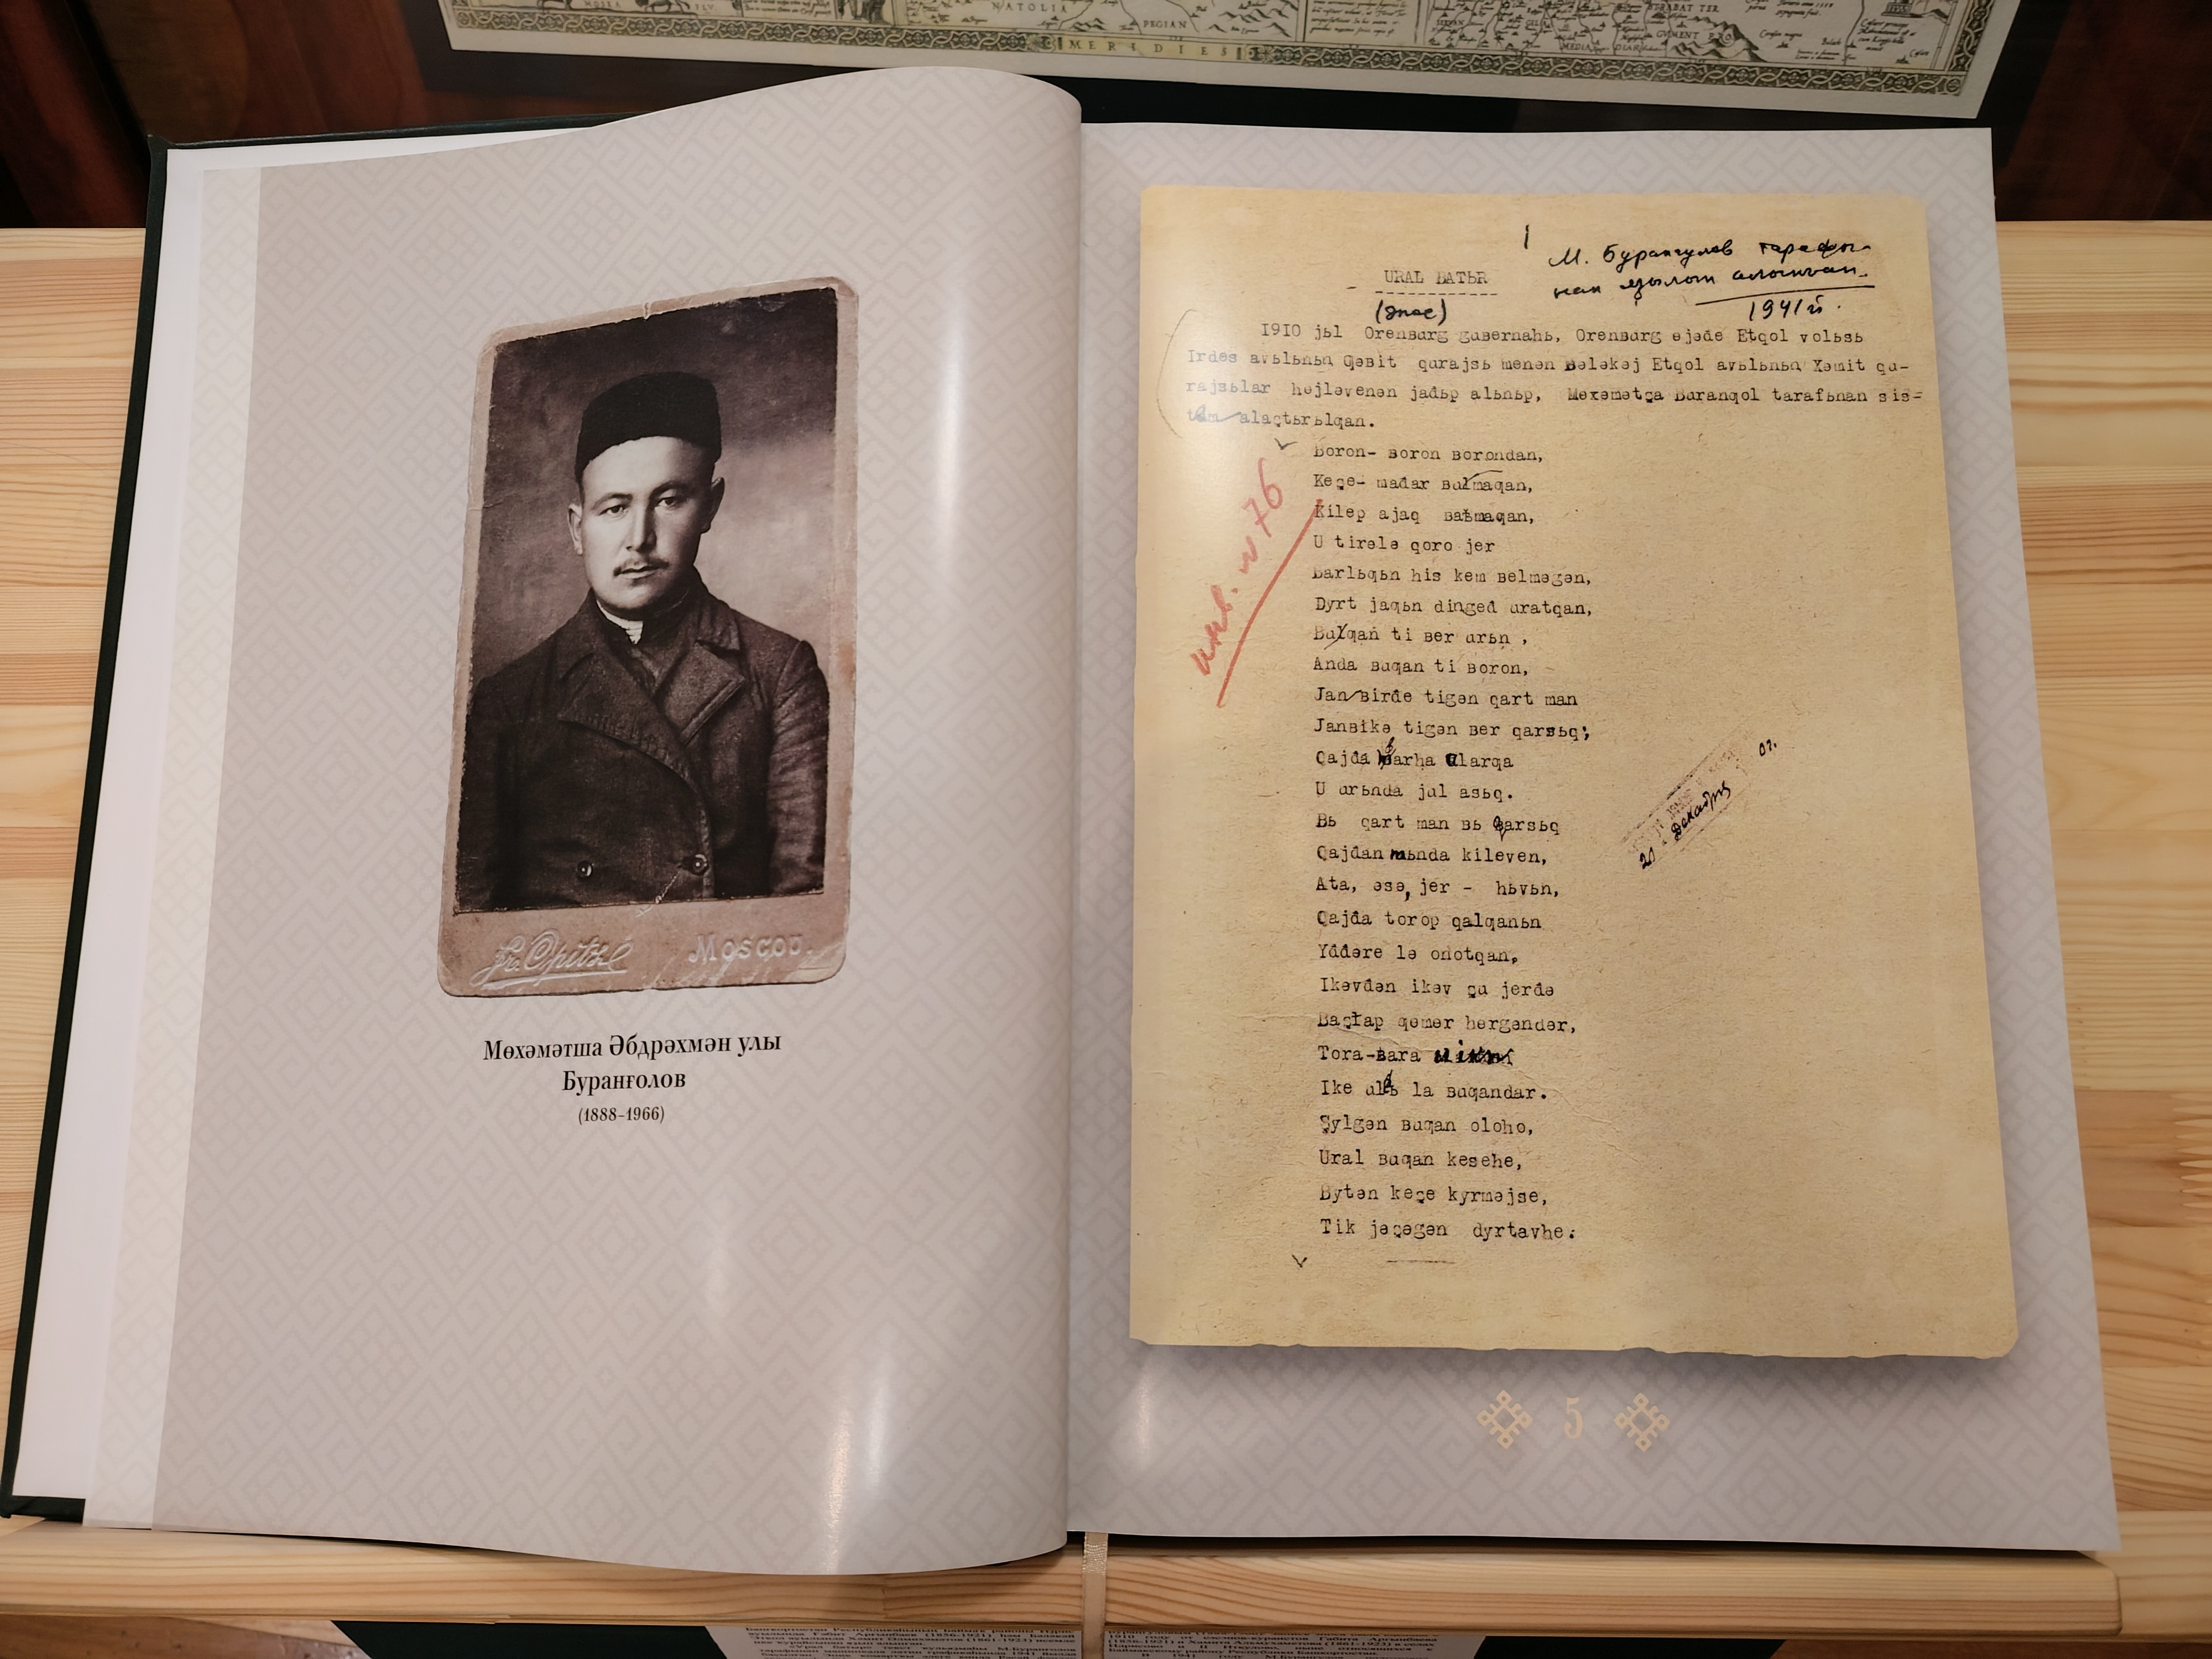 NATOLIA
PEGIAN
MERIDIES
MEDIA
Fr. Opitz
Moscou.
Мөхәмәтша Әбдрәхмән улы
Буранғолов
(1888–1966)
1
М. Бурангулов тарафы-
нан язылып алынган.
1941 й.
URAL BATЬR
(эпос)
1910 jьl Orenʙurg guʙernahь, Orenʙurg ɵjəđe Etqol volьsь
Irdes avьlьnьn Qəʙit qurajsь menən Bələkəj Etqol avьlьnьn Xəmit qu-
rajsьlar hɵjləvenən jađьp alьnьp, Mɵxəmətça Buranqol tarafьnan sis-
tem alaçtьrьlqan.
Boron- ʙoron ʙorondan,
Keçe- mađar ʙulmaqan,
Kilep ajaq ʙaŧmaqan,
U tirələ qoro jer
Barlьqьn his kem ʙelməgən,
Dyrt jaqьn dingeđ uratqan,
Bulqan ti ʙer urьn ,
Anda ʙuqan ti ʙoron,
Janʙirđe tigən qart man
Janʙikə tigən ʙer qarsьq;
Qajđa ʙarha ularqa
U urьnda jul asьq.
Bь qart man ʙь qarsьq
Qajđan mьnda kileven,
Ata, əsə, jer - hьvьn,
Qajđa torop qalqanьn
Yđđəre lə onotqan,
Ikəvđən ikəv çu jerđə
Baçlap qɵmer hɵrgəndər,
Tora-ʙara
Ike ulь la ʙuqandar.
Şylgən ʙuqan oloho,
Ural ʙuqan kesehe,
Bytən keçe kyrməjse,
Tik jəçəgən dyrtəvhe.
инв. № 76
21 декабрь
5